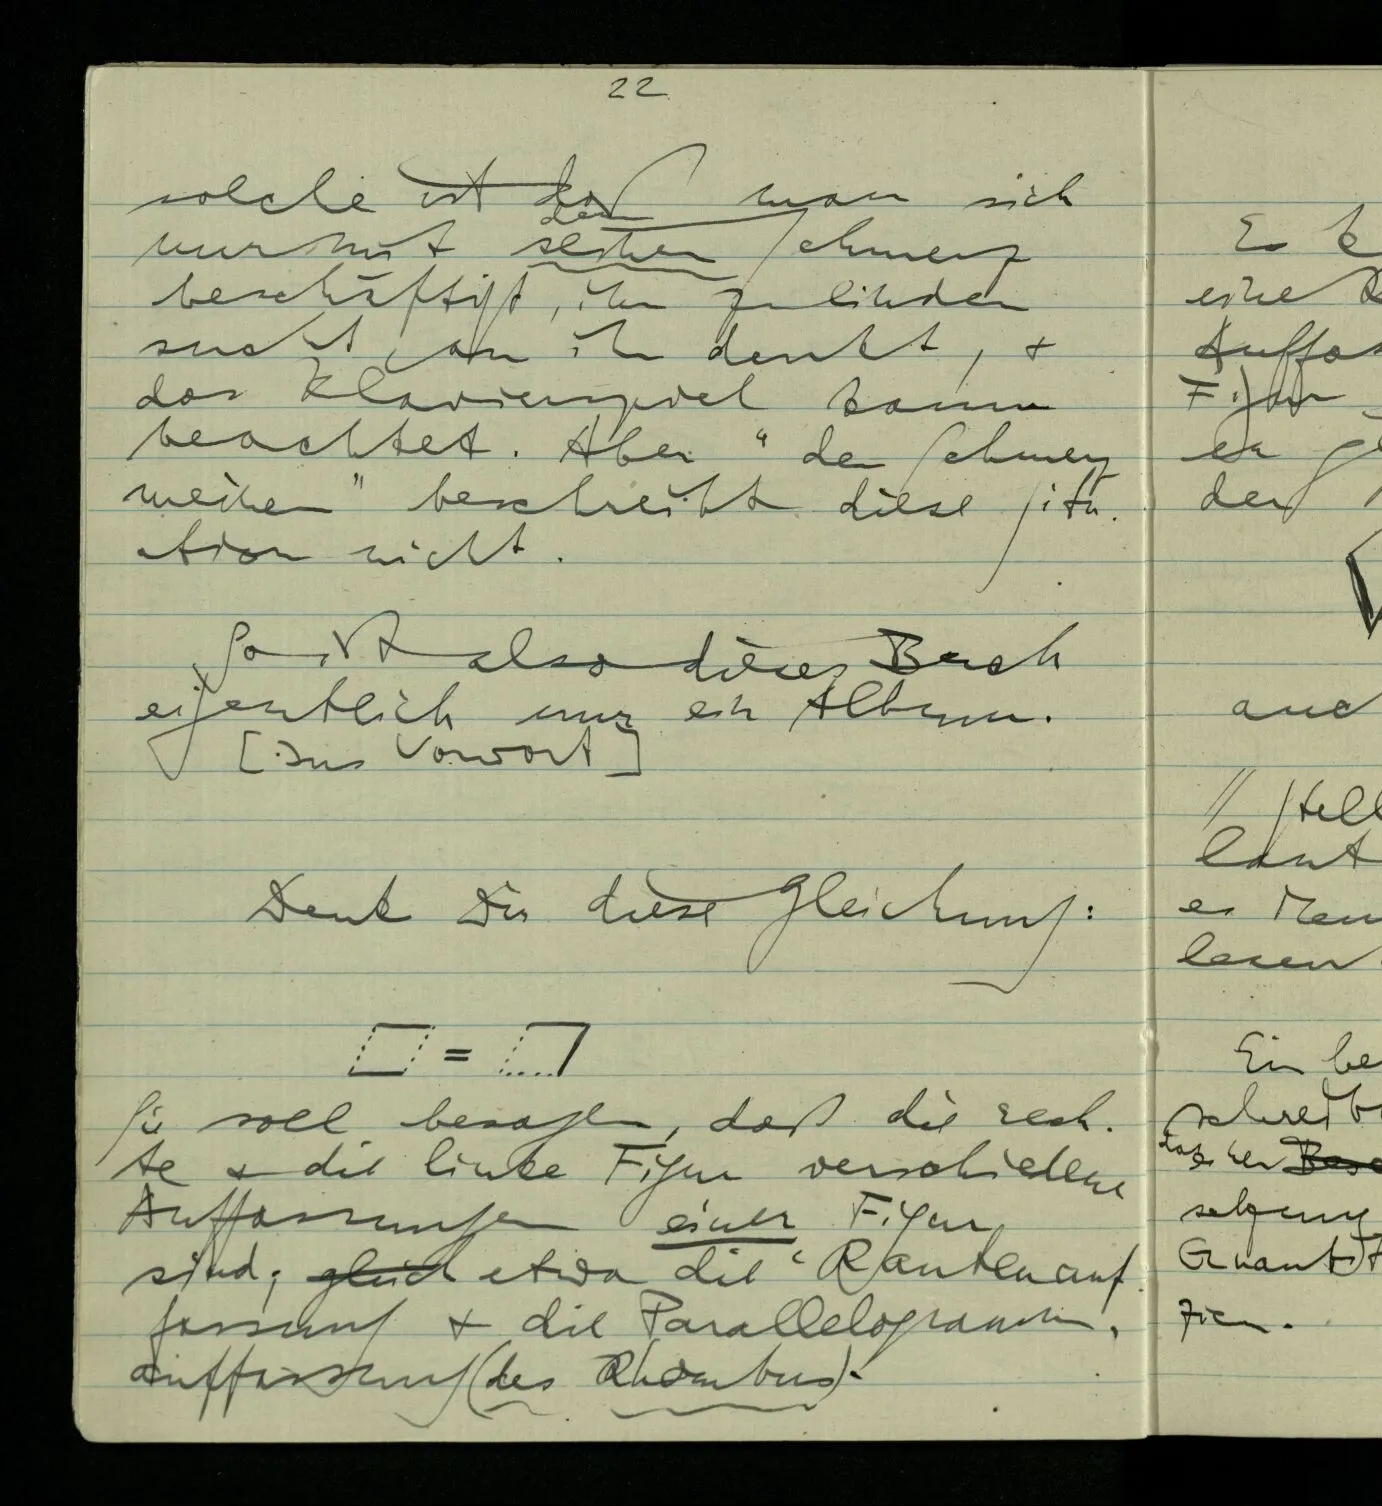 22
solche ist daß man sich
den
nur mit seinen Schmerz
beschäftigt, ihn zu lindern
sucht, an ihn denkt, &
das Klavierspiel kaum
beachtet. Aber "den Schmerz
meinen" beschreibt diese Situ-
ation nicht.
So ist also dieses Buch
eigentlich nur ein Album.
[Ins Vorwort]
Denk Dir diese Gleichung:
=
Sie soll besagen, daß die rech-
te & die linke Figur verschiedene
Auffassungen einer Figur
sind; gleich etwa die 'Rautenauf-
fassung & die Parallelogramm-
auffassung (des Rhombus).
Es k
eine
Auffas
Figur
er
der
auc
// Stell
laut
er
lesen
Ein be
schreib
das
setzung
Quant
zier.